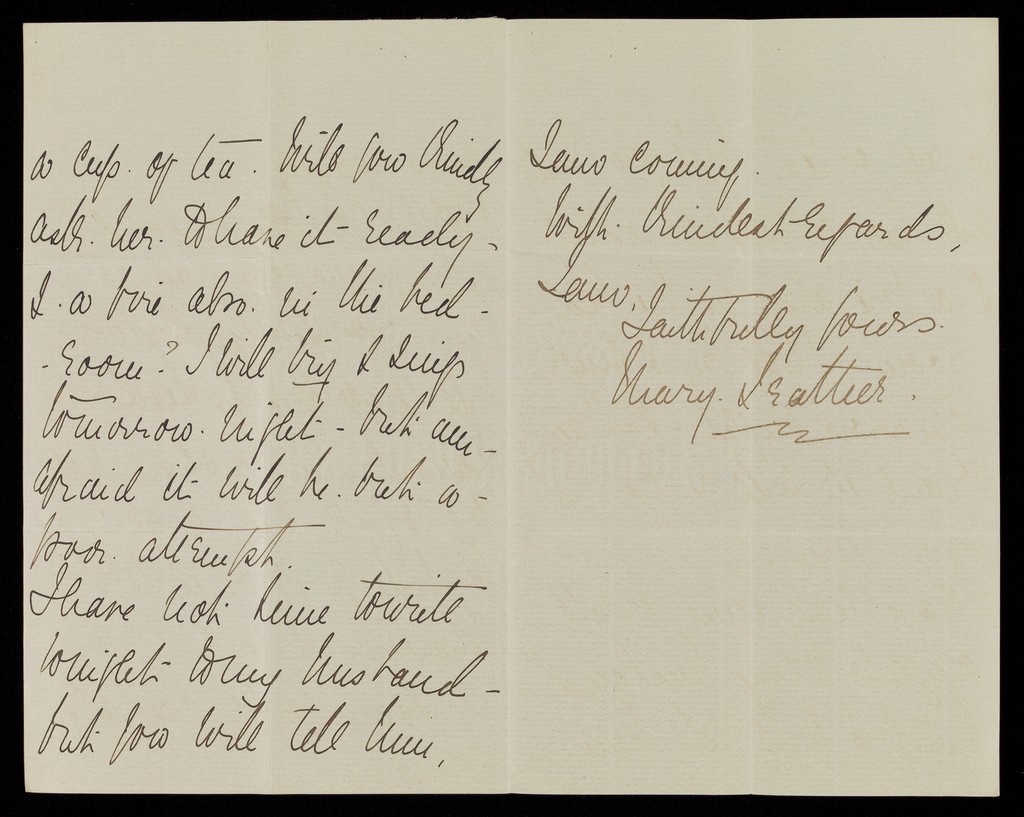 a cup. of tea. Will you kindly
ask. her. to have it ready -
& . a fire also. in the bed -
- room? I will try & sing
tomorrow. night - but am -
afraid it will be. but a -
poor. attempt.
I have not time to write
tonight to my husband -
but you will tell him,
I am coming.
With. kindest regards,
I am,
Faithfully yours.
Mary.